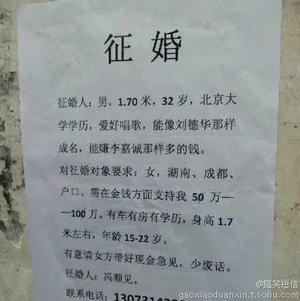 征 婚
征婚人：男，1.70 米，32 岁，北京大
学学历，爱好唱歌，能像刘德华那样
成名，能赚李嘉诚那样多的钱。
对征婚对象要求：女，湖南、成都、
户口，需在金钱方面支持我 50 万—
—100 万。有车有房有学历，身高 1.7
米左右，年龄 15-22 岁。
有意请女方带好现金急见，少废话。
征婚人：冯顺见。
联系电话：
@搞笑短信
gaoxiaoduanxin.t.sohu.com